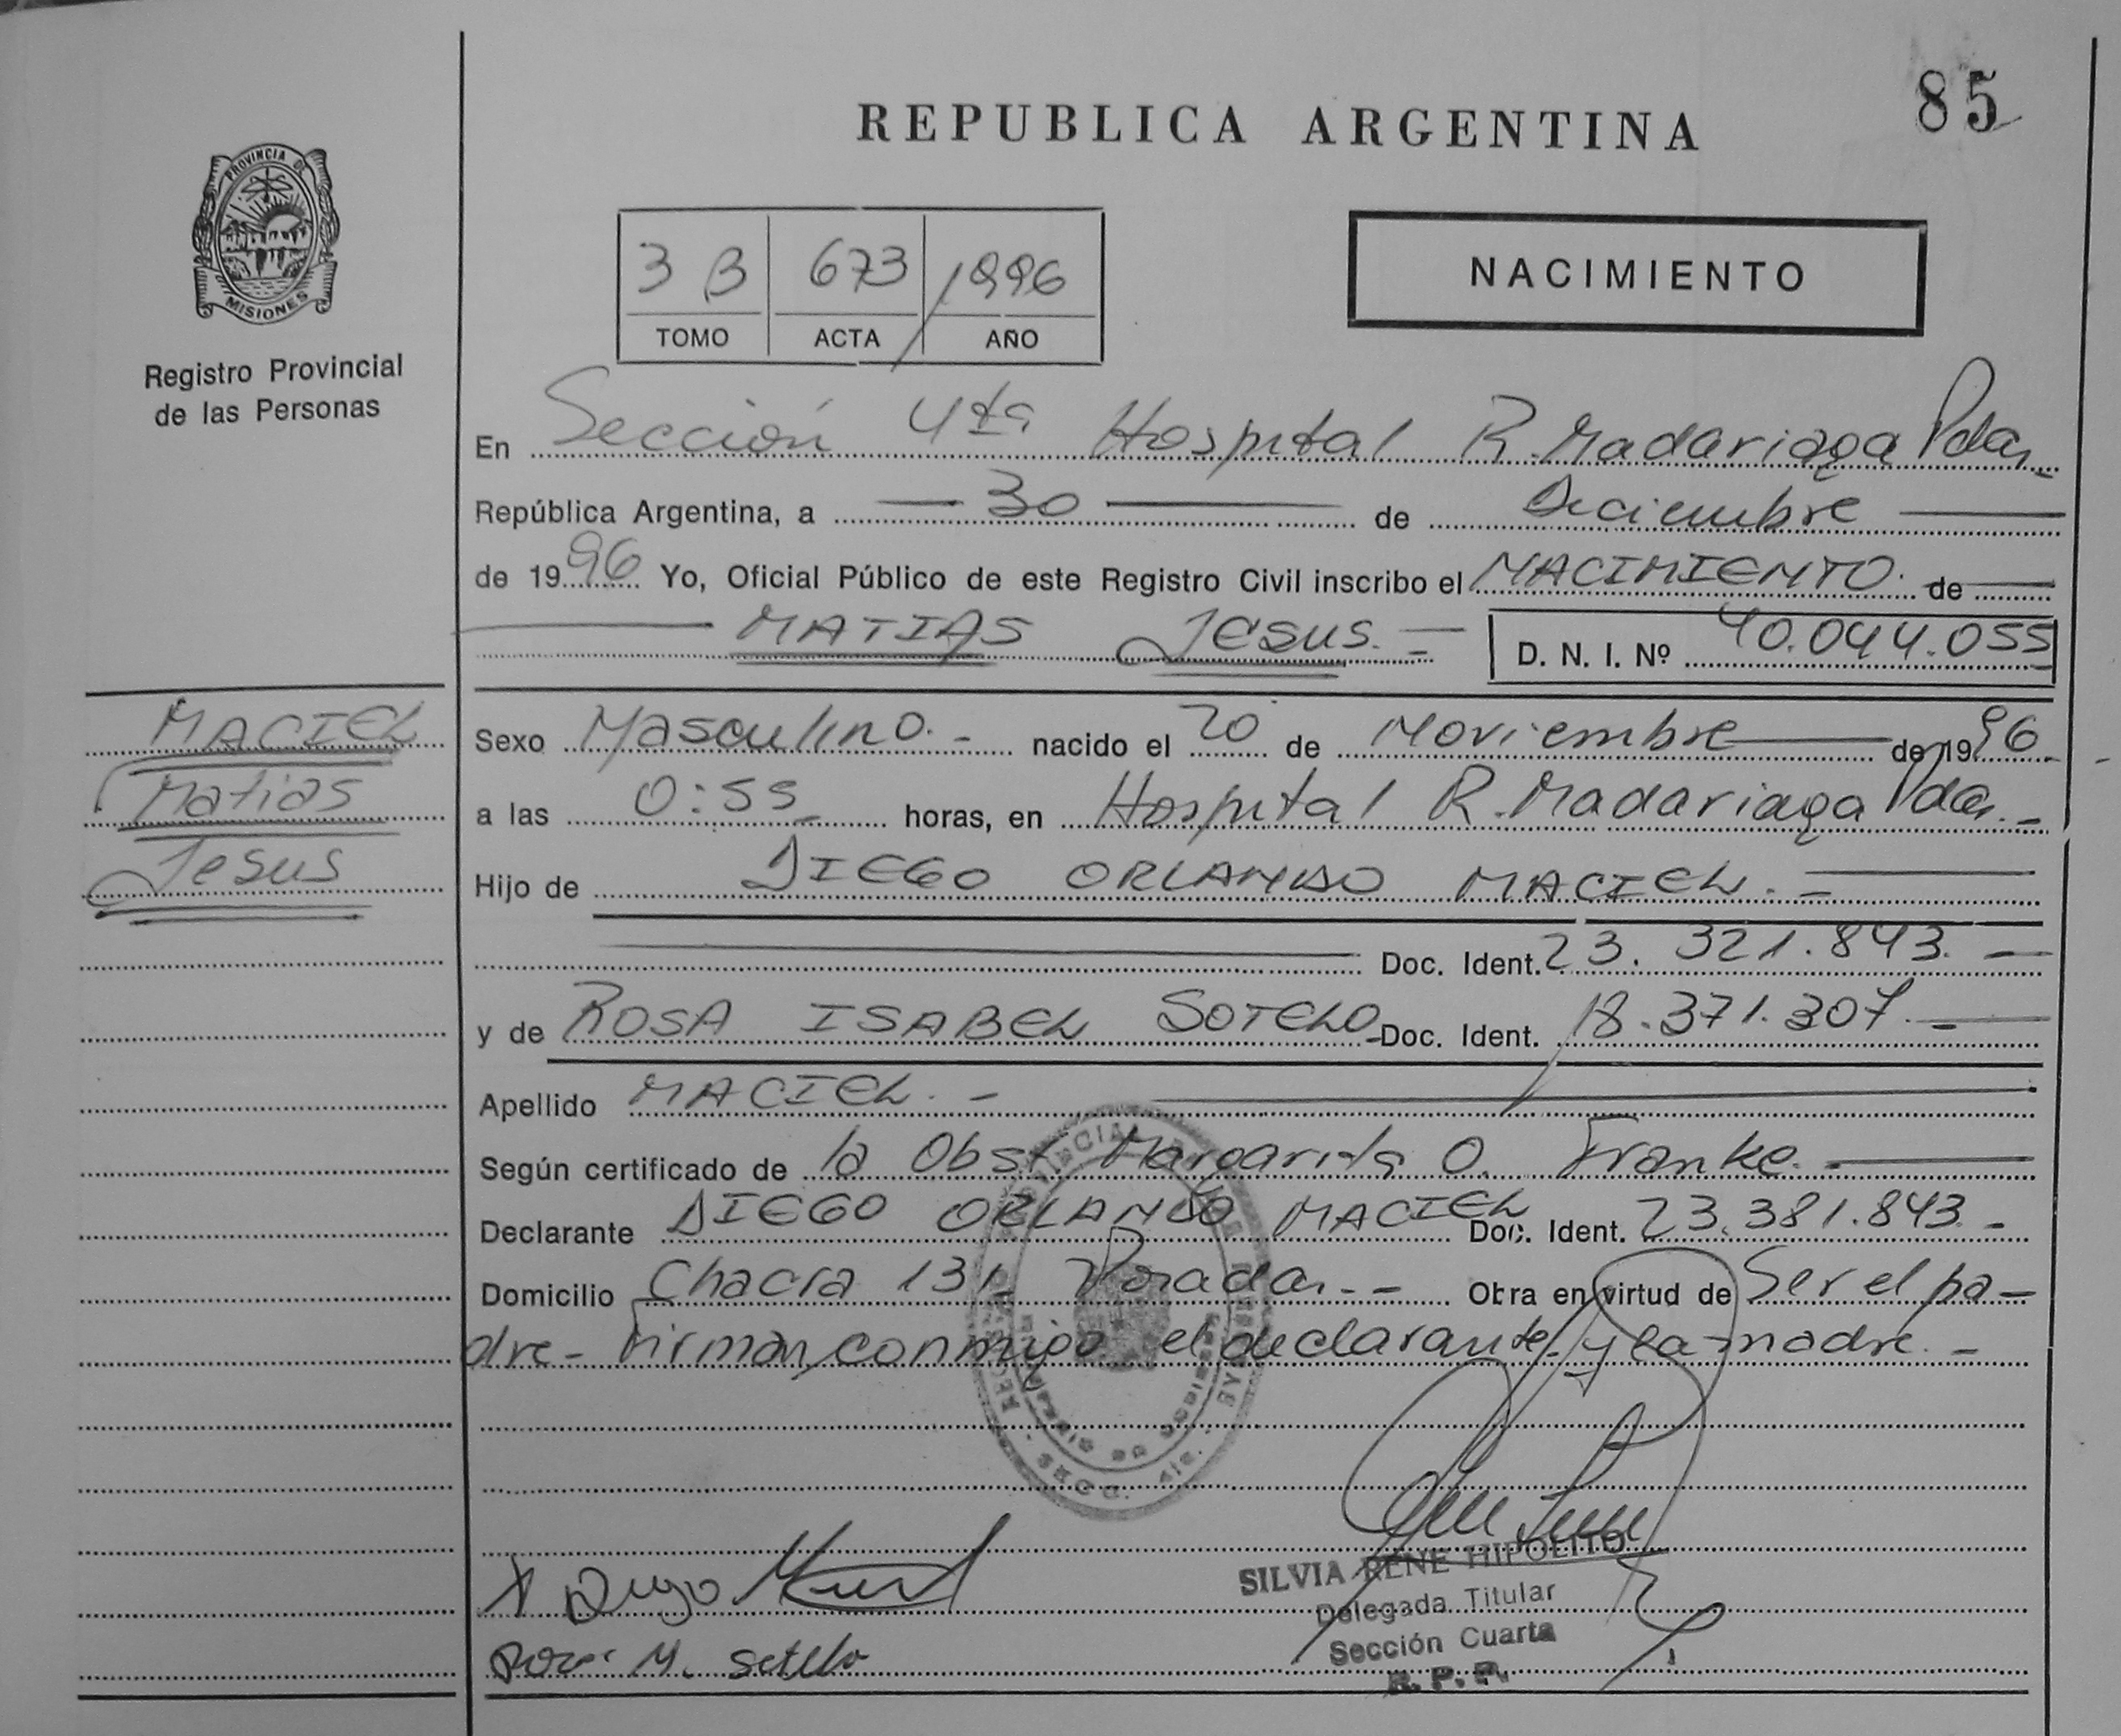 85
REPUBLICA ARGENTINA
PROVINCIA DE
MISIONES
Registro Provincial
de las Personas
3 B 673 1996
TOMO ACTA AÑO
NACIMIENTO
En Sección 4ta Hospital R. Madariaga Pdas
República Argentina, a 30 de Diciembre
de 1996 Yo, Oficial Público de este Registro Civil inscribo el NACIMIENTO. de
MATIAS JESUS. D. N. I. Nº 40.044.055
MACIEL
Matias
Jesus
Sexo Masculino. - nacido el 20 de Noviembre de 1996.
a las 0:55 horas, en Hospital R. Madariaga Pdas. -
Hijo de DIEGO ORLANDO MACIEL. -
Doc. Ident. 23.321.843. -
y de ROSA ISABEL SOTELO Doc. Ident. 18.371.307. -
Apellido MACIEL. -
Según certificado de la Obst. Margarita O. Franke. -
Declarante DIEGO ORLANDO MACIEL Doc. Ident. 23.381.843. -
Domicilio Chacra 131 Posadas. - - Obra en virtud de Ser el pa-
dre - Firman conmigo el declarante y la madre. -
SECC. 4ta.
X Diego
SILVIA RENE HIPOLITO
Delegada Titular
Sección Cuarta
R. P. P.
M. Sotelo